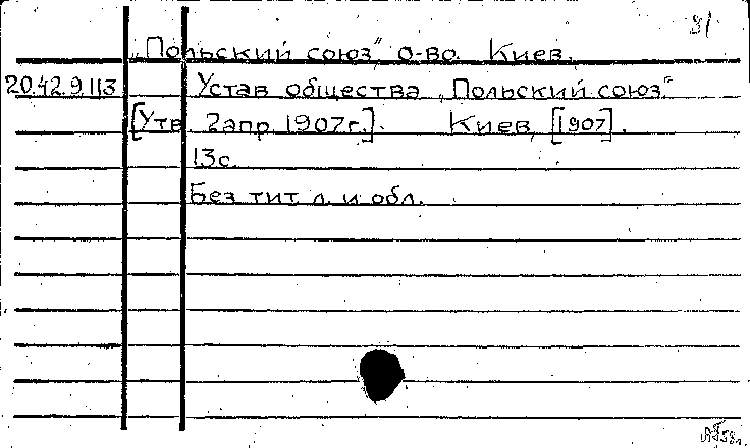 81
„Польский союз", о-во. Киев.
20.42.9.113 Устав общества „Польский союз".
[Утв. 2 апр. 1907 г.]. Киев, [1907].
13 с.
Без тит. л. и обл.